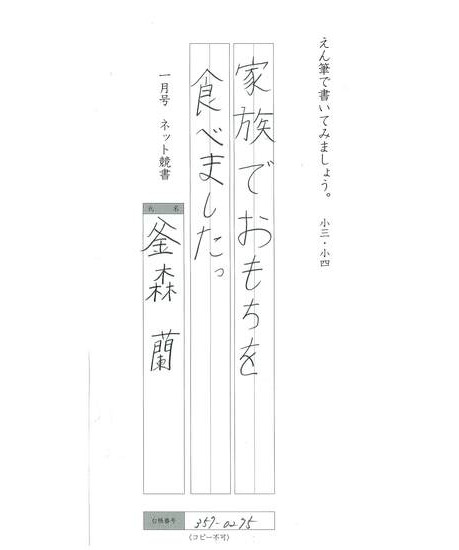 えん筆で書いてみましょう。 小三・小四
家族でおもちを
食べました。
一月号 ネット競書
氏名
釜森 蘭
台帳番号 357-0275
(コピー不可)